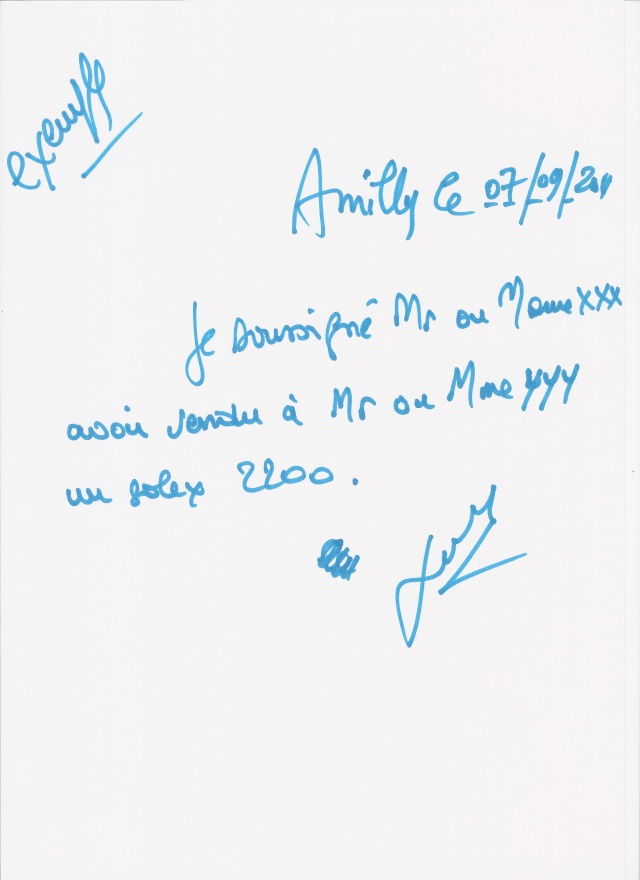 exemple
Amilly le 07/09/2011
Je soussigné Mr ou Mme XXX
avoir vendu à Mr ou Mme YYY
un solex 2200.